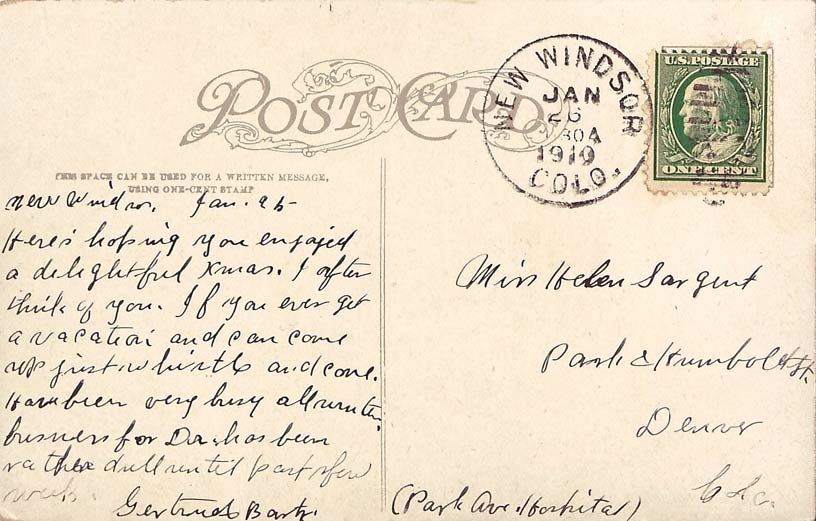 POST CARD
NEW WINDSOR
JAN
26
30A
1910
COLO.
U.S. POSTAGE
ONE CENT
THIS SPACE CAN BE USED FOR A WRITTEN MESSAGE,
USING ONE-CENT STAMP
New Windsor, Jan. 25-
Here's hoping you enjoyed
a delightful Xmas. I often
think of you. If you ever get
a vacation and can come
up just whistle and come.
Have been very busy all winter,
business for Da has been
rather dull until past few
weeks.
Gertrude
Miss Helen Sargent
Park & Humboldt St.
Denver
Colo.
(Park Ave. Hospital)